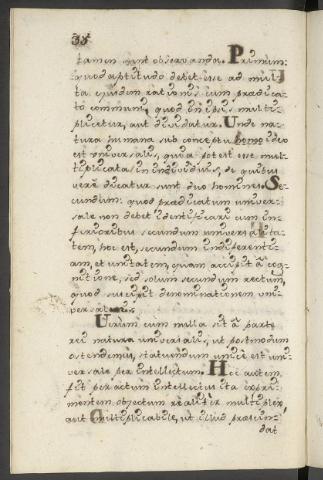 38
tamen sunt observanda. Primum:
quod aptitudo debet esse ad mul-
ta ejusdem rationis cum prædica-
to communi, quod in ipsis multi-
plicetur, aut dividatur. Unde na-
tura humana sub conceptu hominis ideo
est universalis, quia potest esse mul-
tiplicata in individuis, de quibus
verè dicatur sunt duo homines. Se-
cundum: quod prædicatum univer-
sale non debet identificari cum in-
ferioribus secundum universalita-
tem, hoc est, secundum indifferenti-
am, et unitatem, quam accipit à cog-
nitione, sed solum secundum rectum,
quod suscipit denominationem uni-
versalem.
Verùm cum nulla sit à parte
rei natura universalis, ut postmodum
ostendemus, statuendum unicè est uni-
versale per intellectum. Hoc autem
fit per actum intellectus ita expri-
mentem objectum realiter multiplex,
aut multiplicabile, ut illud præscin-
dat